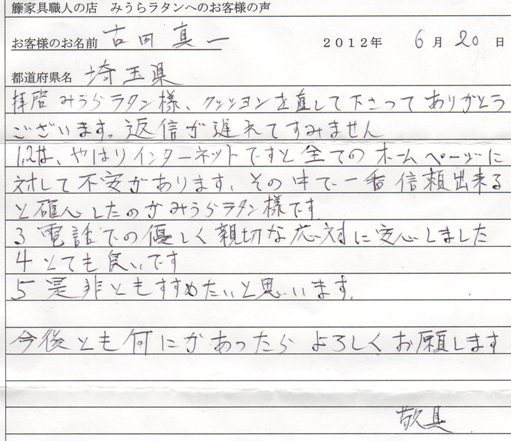 籐家具職人の店　みうらラタンへのお客様の声
お客様のお名前　古田真一　2012年　6月20日
都道府県名　埼玉県
拝啓みうらラタン様、クッションを直して下さってありがとう
ございます。返信が遅れてすみません
1,2は、やはりインターネットですと全てのホームページに
対して不安があります、その中で一番信頼出来る
と確心したのがみうらラタン様です
3 電話での優しく親切な応対に安心しました
4 とても良いです
5 是非ともすすめたいと思います.
今後とも何にかあったら よろしくお願します
敬具